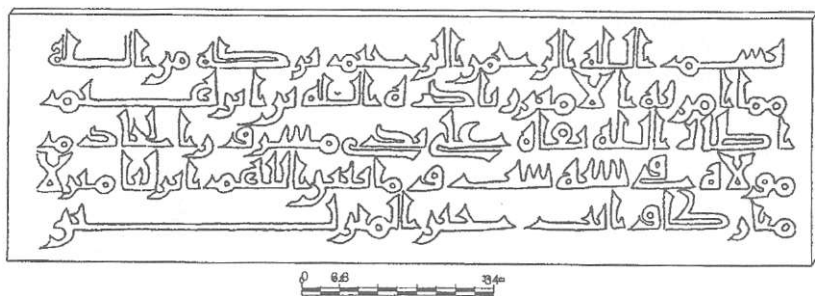 بسم الله الرحمن الرحيم بركة من الله
مما امر به الامير زيادة الله بن ابرهيم
اطال الله بقاه على يدي مسرور الخادم
مولاه في سنة ست و مايتين اللهم انزلنا منزلا
مباركا و انت خير المنزلين
0 6.8 34